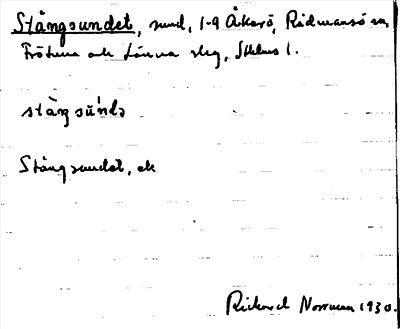 Stångsundet, sund, 1-9 Åkerö, Rådmansö sn,
Frötuna och Länna slg, Sthlms l.
stàŋsúǹdə
Stångsundet, ek
Rickard Norrman 1930.